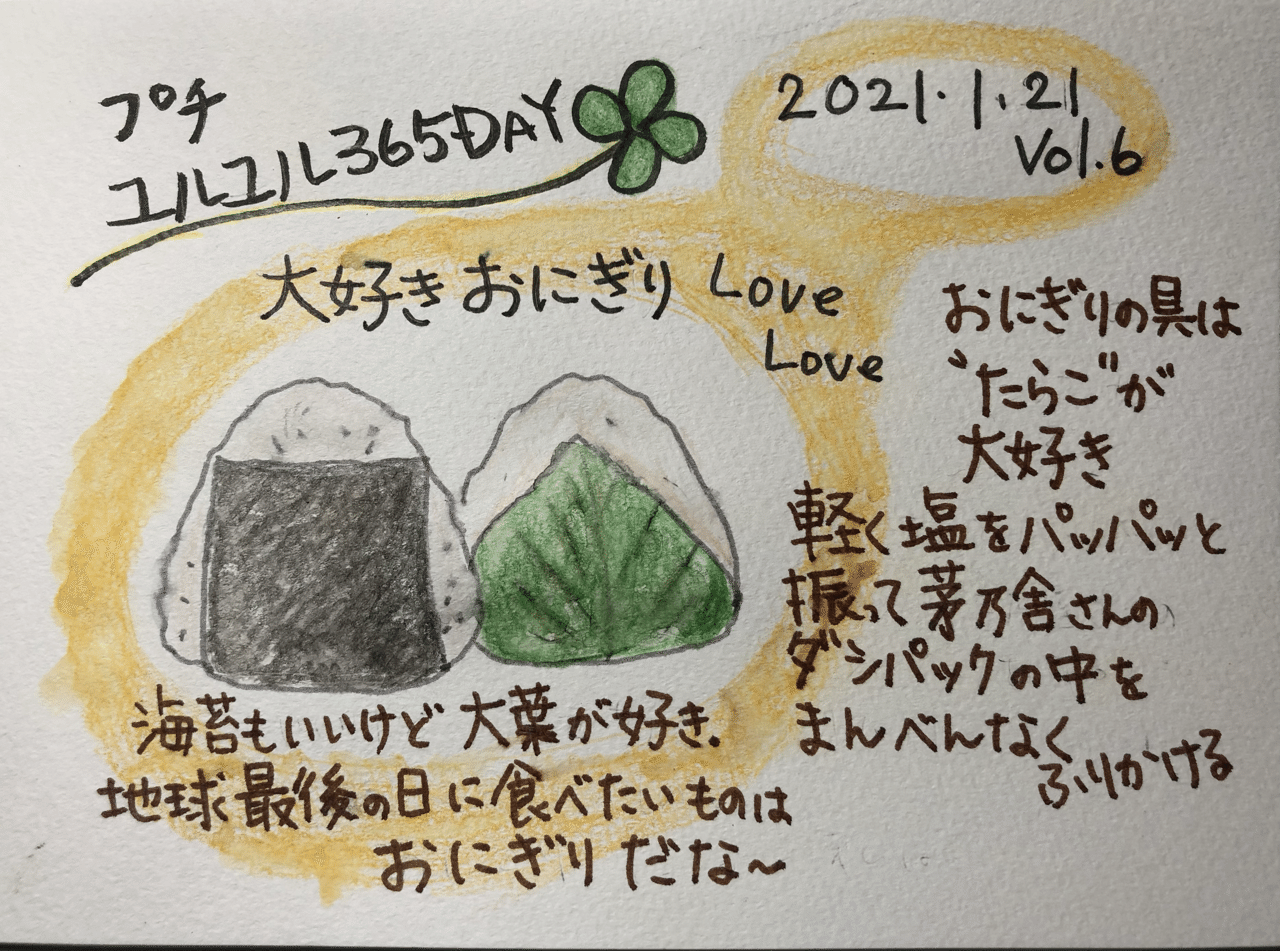 プチ
ユルユル365DAY
2021.1.21
Vol.6
大好きおにぎり Love
Love
おにぎりの具は
"たらこ"が
大好き
軽く塩をパッパッと
振って茅乃舎さんの
ダシパックの中を
まんべんなく
ふりかける
海苔もいいけど大葉が好き.
地球最後の日に食べたいものは
おにぎりだな〜